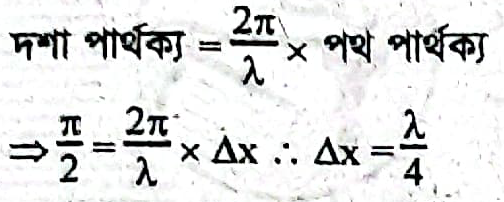 দশা পার্থক্য = 2π/λ × পথ পার্থক্য
⇒ π/2 = 2π/λ × Δx ∴ Δx = λ/4